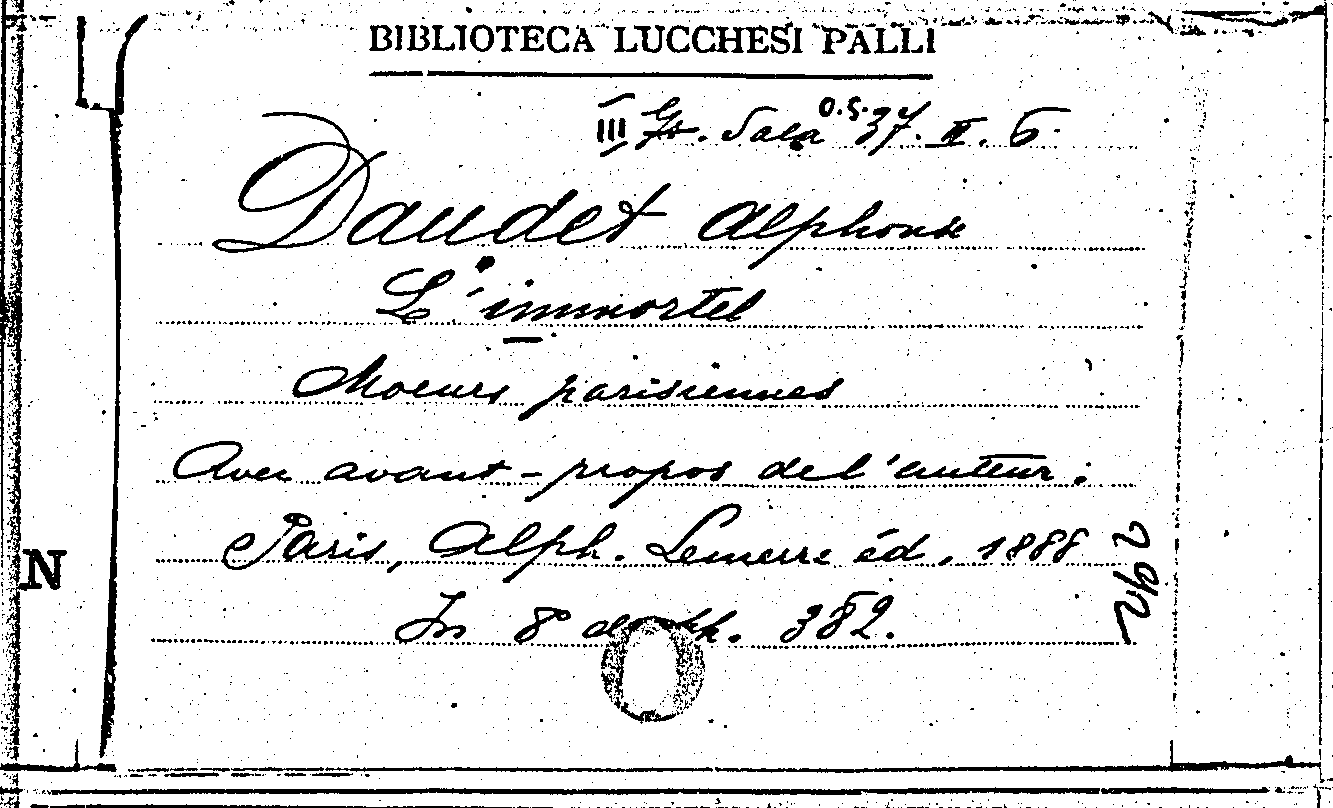 BIBLIOTECA LUCCHESI PALLI
III Gr. Sala O.S. 37. III. 6.
Daudet Alphonse
L'immortel
Moeurs parisiennes
Avec avant-propos de l'auteur.
Paris, Alph. Lemerre éd. 1888
In 8° 382.
292
N